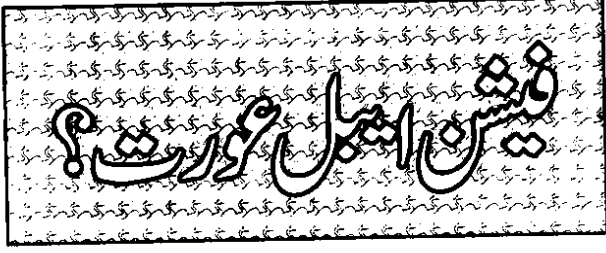 فیشن ایبل عورت؟